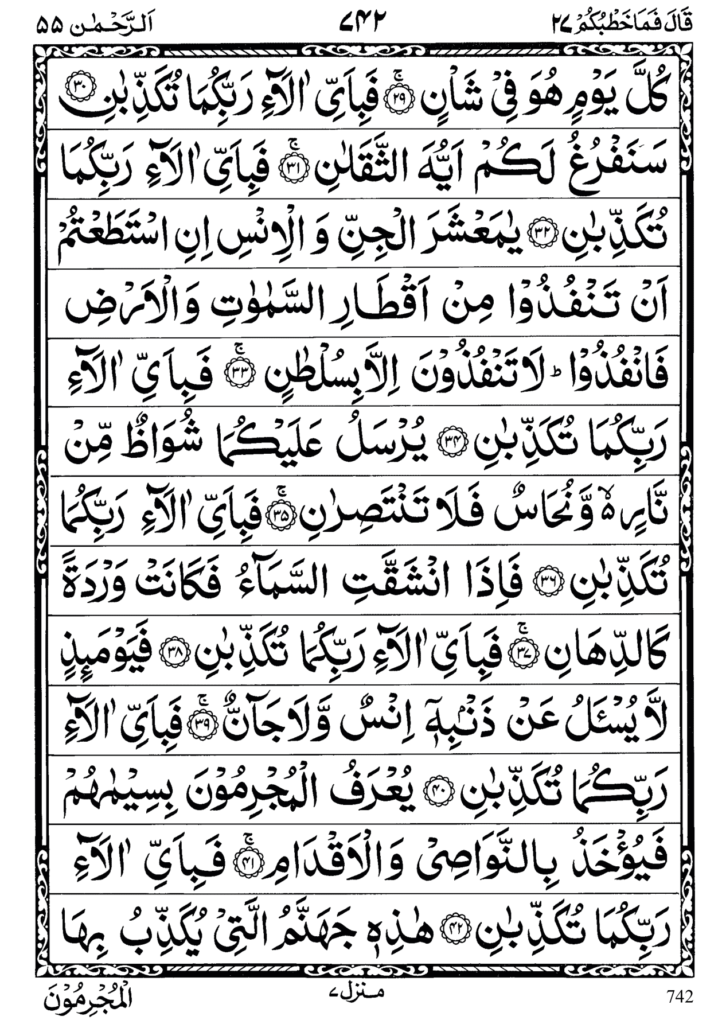 قَالَ فَمَا خَطْبُكُمْ ٢٧ ٧٤٢ اَلرَّحْمٰن ٥٥
كُلَّ يَوْمٍ هُوَ فِیْ شَاْنٍ ۚ﴿٢٩﴾ فَبِاَیِّ اٰلَآءِ رَبِّكُمَا تُكَذِّبٰنِ ﴿٣٠﴾
سَنَفْرُغُ لَكُمْ اَیُّهَ الثَّقَلٰنِ ۚ﴿٣١﴾ فَبِاَیِّ اٰلَآءِ رَبِّكُمَا
تُكَذِّبٰنِ ﴿٣٢﴾ یٰمَعْشَرَ الْجِنِّ وَ الْاِنْسِ اِنِ اسْتَطَعْتُمْ
اَنْ تَنْفُذُوْا مِنْ اَقْطَارِ السَّمٰوٰتِ وَالْاَرْضِ
فَانْفُذُوْا ؕ لَا تَنْفُذُوْنَ اِلَّا بِسُلْطٰنٍ ۚ﴿٣٣﴾ فَبِاَیِّ اٰلَآءِ
رَبِّكُمَا تُكَذِّبٰنِ ﴿٣٤﴾ یُرْسَلُ عَلَیْكُمَا شُوَاظٌ مِّنْ
نَّارٍ ۙ۬ وَّ نُحَاسٌ فَلَا تَنْتَصِرٰنِ ۚ﴿٣٥﴾ فَبِاَیِّ اٰلَآءِ رَبِّكُمَا
تُكَذِّبٰنِ ﴿٣٦﴾ فَاِذَا انْشَقَّتِ السَّمَآءُ فَكَانَتْ وَرْدَةً
كَالدِّهَانِ ۚ﴿٣٧﴾ فَبِاَیِّ اٰلَآءِ رَبِّكُمَا تُكَذِّبٰنِ ﴿٣٨﴾ فَیَوْمَىِٕذٍ
لَّا یُسْـَٔلُ عَنْ ذَنْۢبِهٖۤ اِنْسٌ وَّلَا جَآنٌّ ۚ﴿٣٩﴾ فَبِاَیِّ اٰلَآءِ
رَبِّكُمَا تُكَذِّبٰنِ ﴿٤٠﴾ یُعْرَفُ الْمُجْرِمُوْنَ بِسِیْمٰىهُمْ
فَیُؤْخَذُ بِالنَّوَاصِیْ وَالْاَقْدَامِ ۚ﴿٤١﴾ فَبِاَیِّ اٰلَآءِ
رَبِّكُمَا تُكَذِّبٰنِ ﴿٤٢﴾ هٰذِهٖ جَهَنَّمُ الَّتِیْ یُكَذِّبُ بِهَا
742 منزل ٧ الْمُجْرِمُوْنَ